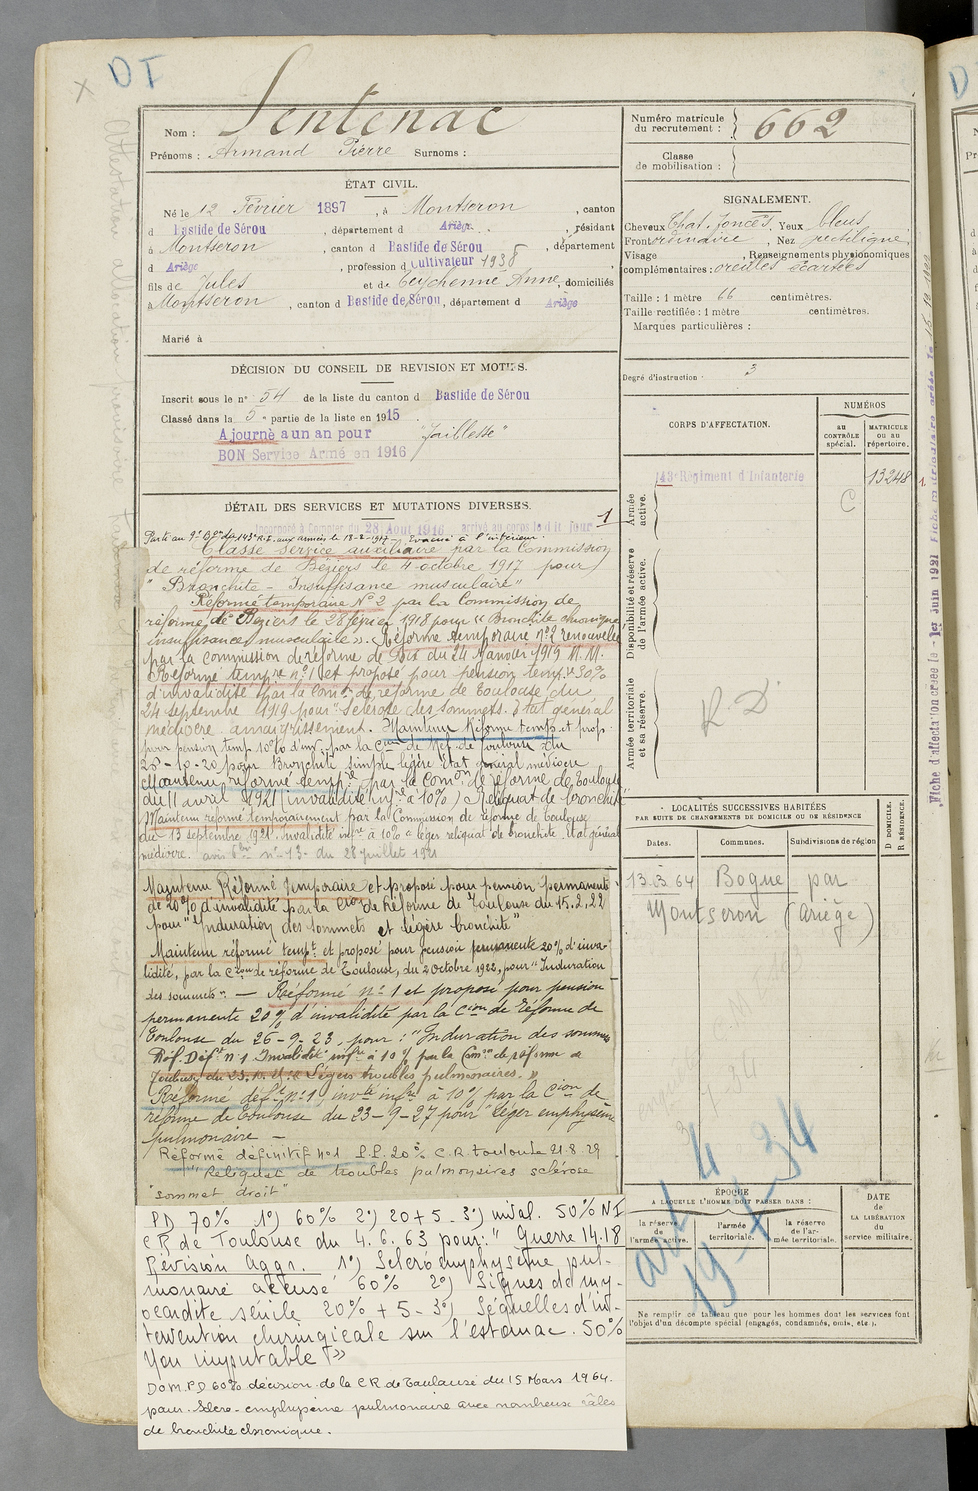 DI
X
Nom : Sentenac
Prénoms : Armand Pierre Surnoms :
Numéro matricule du recrutement : 662
Classe de mobilisation :
ÉTAT CIVIL.
Né le 12 Février 1897, à Montseron, canton
d Bastide de Sérou, département d Ariège, résidant
à Montseron, canton d Bastide de Sérou, département
d Ariège, profession d Cultivateur 1938
fils de Jules et de Teychenne Anne, domiciliés
à Montseron, canton d Bastide de Sérou, département d Ariège
Marié à
SIGNALEMENT.
Cheveux Chat. foncés, Yeux bleus
Front ordinaire, Nez rectiligne,
Visage , Renseignements physionomiques
complémentaires : oreilles écartées
Taille : 1 mètre 66 centimètres.
Taille rectifiée : 1 mètre centimètres.
Marques particulières :
Degré d'instruction : 3
DÉCISION DU CONSEIL DE REVISION ET MOTIFS.
Inscrit sous le n° 54 de la liste du canton d Bastide de Sérou
Classé dans la 5e partie de la liste en 1915
Ajourné a un an pour "faiblesse"
BON Service Armé en 1916
CORPS D'AFFECTATION.
NUMÉROS
au CONTRÔLE spécial.
MATRICULE ou au répertoire.
Armée active.
143e Régiment d'Infanterie
C
13248
Disponibilité et réserve de l'armée active.
Armée territoriale et sa réserve.
R.D.
DÉTAIL DES SERVICES ET MUTATIONS DIVERSES.
1
Incorporé à compter du 28 Août 1916 arrivé au corps le dit jour
Classé service auxiliaire par la Commission
de réforme de Béziers le 4 octobre 1917 pour
"Bronchite - Insuffisance musculaire"
Réformé temporaire N° 2 par la Commission de
réforme de Béziers le 28 février 1918 pour « Bronchite chronique,
insuffisance musculaire ». Réforme temporaire n°2 renouvelée
par la Commission de réforme de Foix du 24 Janvier 1919 M.M.
Réformé tempre n°1 et proposé pour pension tempre 30%
d'invalidité par la Comon de réforme de Toulouse du
24 septembre 1919 pour "Sclérose des sommets. Etat général
médiocre. amaigrissement. Maintenu Réforme temp. et prop.
pour pension temp 10% d'inv. par la Cion de Ref. de Toulouse du
28-10-20 pour Bronchite simple légère Etat général médiocre
Maintenu réformé tempre par la Comon de réforme de Toulouse
du 11 avril 1921 (invalidité infre à 10%) Reliquat de bronchite
Maintenu réformé temporairement par la Commission de réforme de Toulouse
du 13 septembre 1921. invalidité infre à 10% léger reliquat de bronchite, état général
médiocre. avis n°13 du 28 juillet 1921
Maintenu Réformé temporaire et proposé pour pension permanente
de 20% d'invalidité par la Cion de Réforme de Toulouse du 15.2.22
pour "Induration des sommets et légère bronchite"
Maintenu réformé tempt et proposé pour pension permanente 20% d'inva-
lidité, par la Cion de réforme de Toulouse, du 2 octobre 1922, pour "Induration
des sommets". — Réformé n°1 et proposé pour pension
permanente 20% d'invalidité par la Cion de réforme de
Toulouse du 26-9-23 pour : "Induration des sommets
Réf. Déft n°1 Invalidité infre à 10% par la Comon de réforme de
Toulouse du "Légers troubles pulmonaires."
Réformé déft n°1, invté infre à 10% par la Cion de
réforme de Toulouse du 23-9-27 pour "léger emphysème
pulmonaire —
Réformé définitif n°1 P.P. 20% C.R. Toulouse 21.8.29
"Reliquat de troubles pulmonaires sclérose
"sommet droit"
PD 70% 1°) 60% 2°) 20+5 - 3°) inval. 50% NI
CR de Toulouse du 4.6.63 pour : "Guerre 14.18
Révision Aggr. 1°) Scléro emphysème pul-
monaire accusé 60% 2°) Signes de my-
ocardite sénile 20% + 5 - 3°) Séquelles d'int-
tervention chirurgicale sur l'estomac. 50%
Non imputable »
DOM. PD 60% décision de la CR de Toulouse du 15 Mars 1964.
pour Scléro-emphysème pulmonaire avec nombreux râles
de bronchite chronique.
LOCALITÉS SUCCESSIVES HABITÉES
PAR SUITE DE CHANGEMENTS DE DOMICILE OU DE RÉSIDENCE
Dates.
Communes.
Subdivisions de région
D DOMICILE. R RÉSIDENCE.
13.3.64 Bogue par
Montseron (Ariège)
art 4
19-4-34
ÉPOQUE
A LAQUELLE L'HOMME DOIT PASSER DANS :
la réserve de l'armée active.
l'armée territoriale.
la réserve de l'armée territoriale.
DATE de LA LIBÉRATION du service militaire.
Ne remplir ce tableau que pour les hommes dont les services font
l'objet d'un décompte spécial (engagés, condamnés, omis, etc.).
Fiche d'affectation créée le 1er Juin 1921